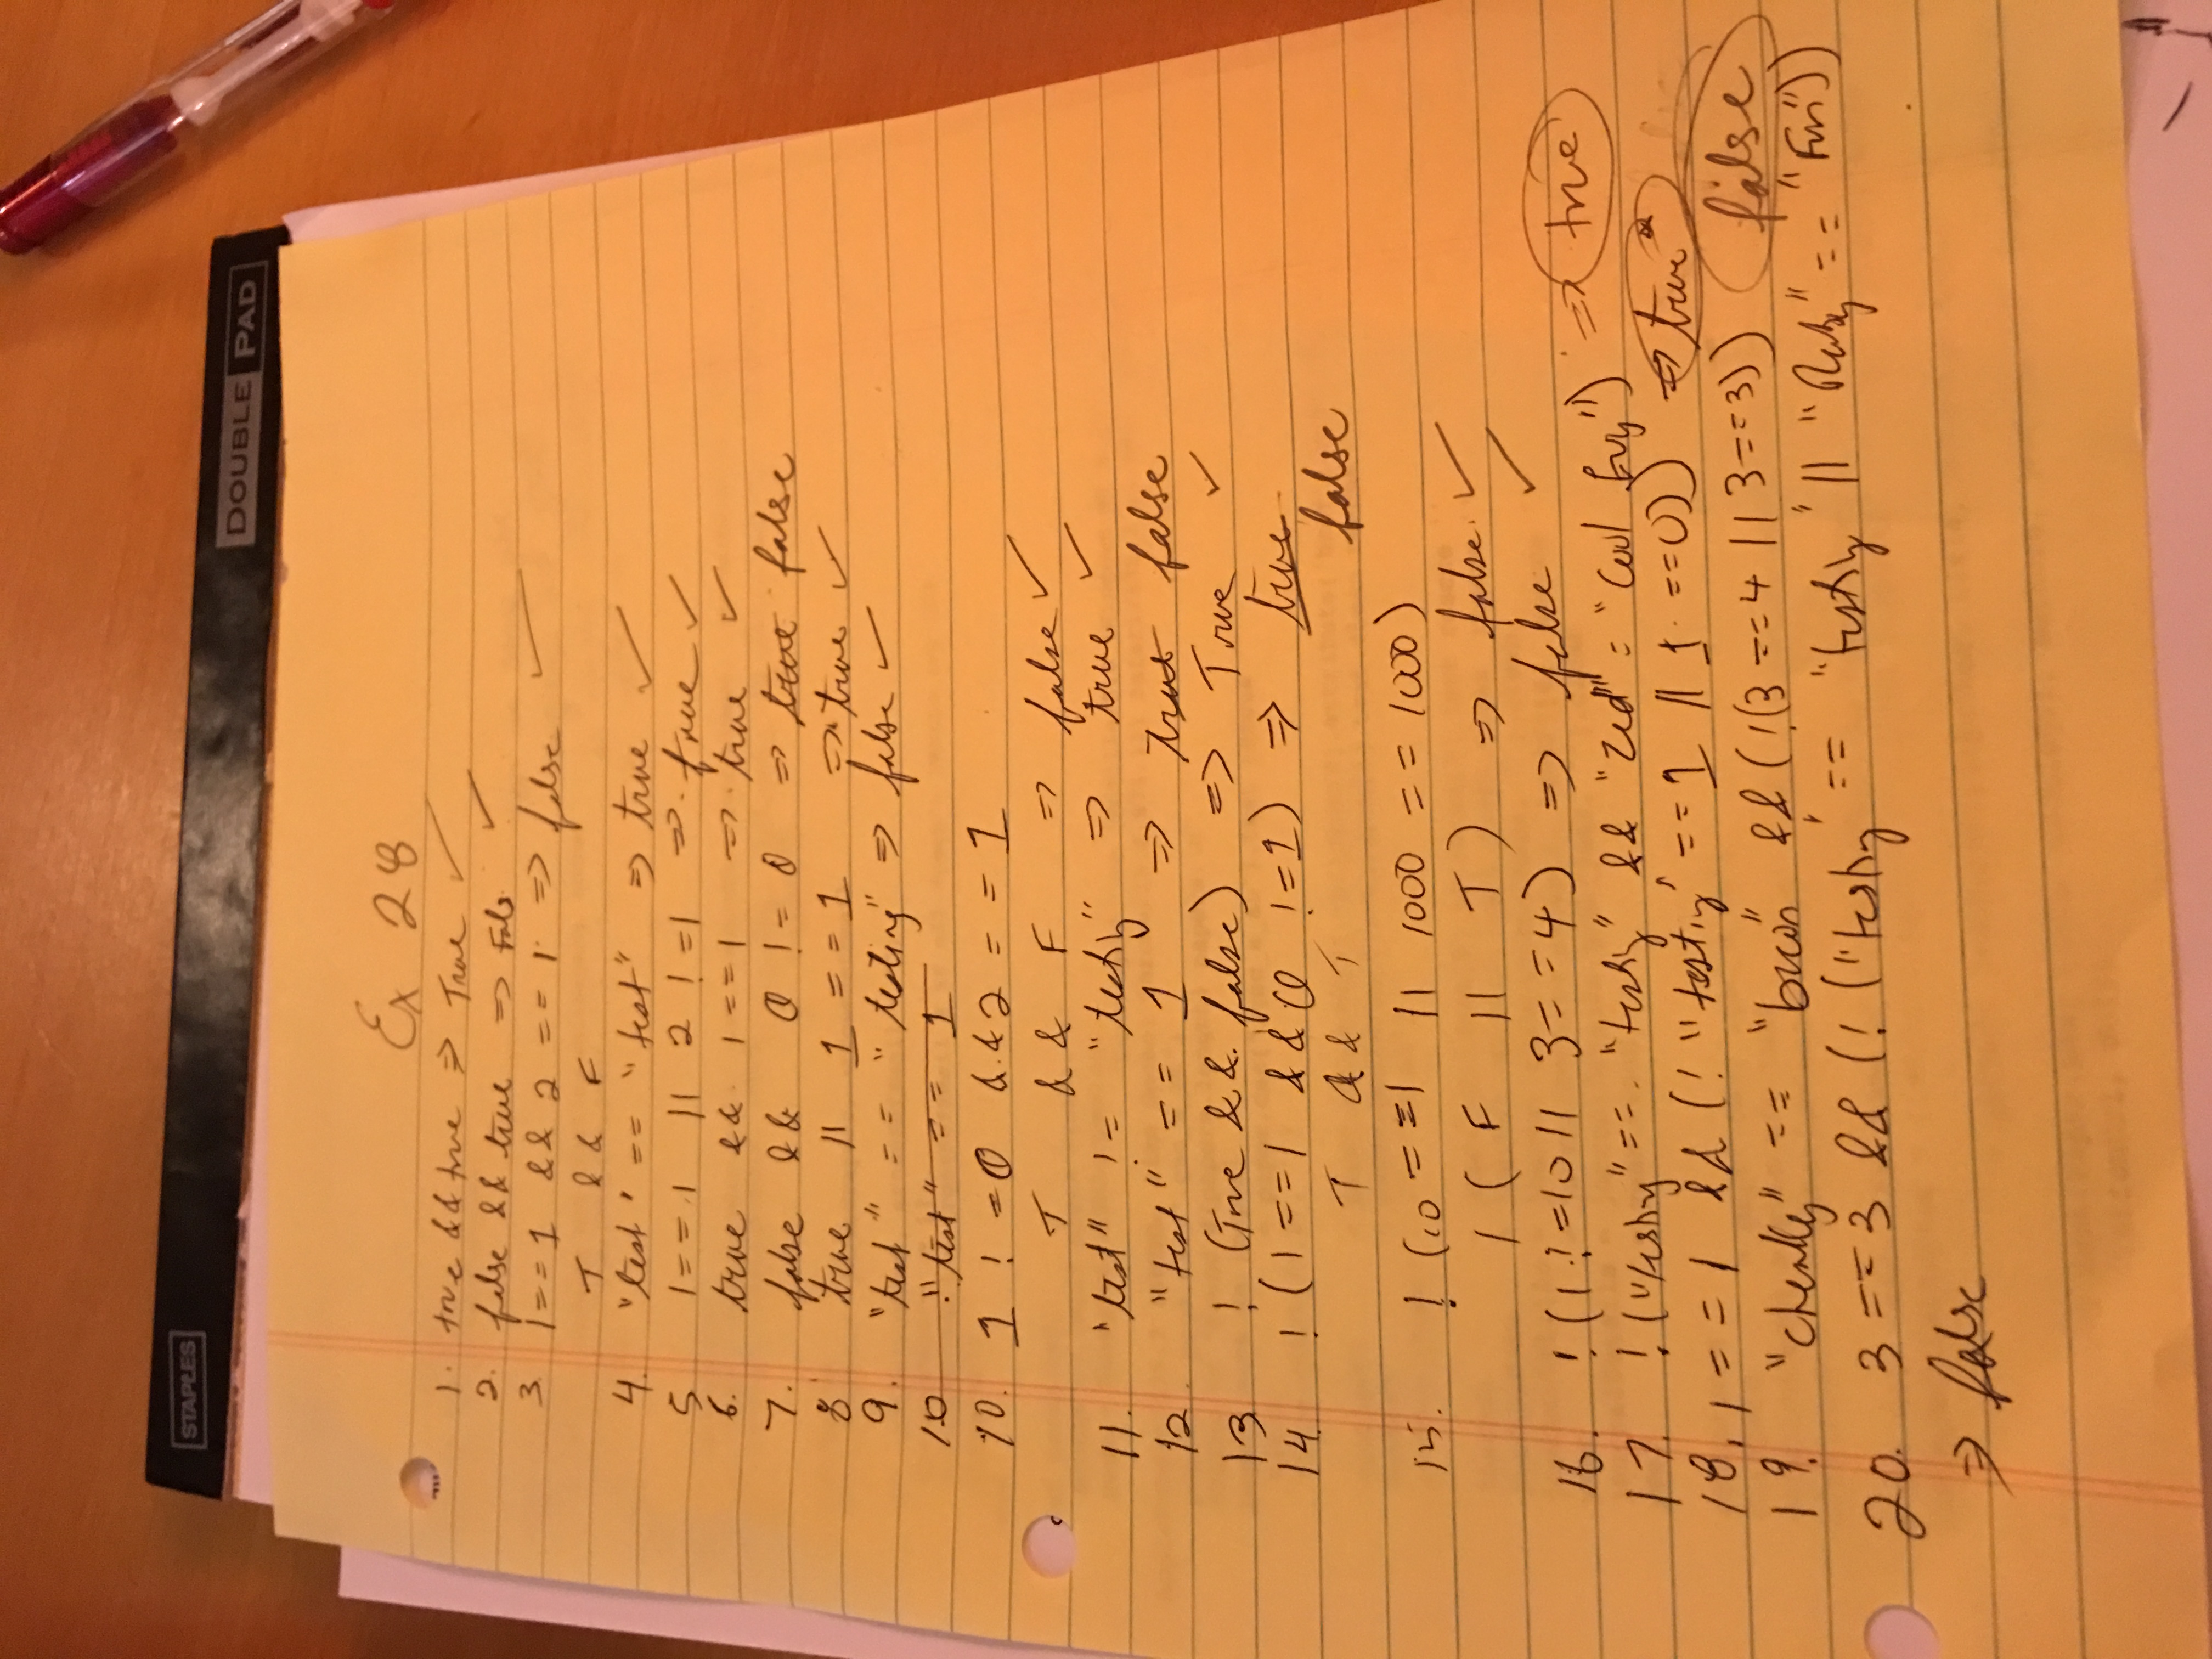 STAPLES
DOUBLE PAD
Ex 28
1. true && true => True ✓
2. false && true => Fals ✓
3 1==1 && 2 == 1 => false ✓
T && F
4. "test" == "test" => true ✓
5 1==1 || 2 !=1 => true ✓
6. true && 1==1 => true ✓
7. false && 0 != 0 => true false
8 true || 1 == 1 => true ✓
9. "test" == "testing" => false ✓
10 !"test" == 1
10. 1 != 0 && 2 == 1
T && F => false ✓
11. "test" != "testing" => true ✓
12. "test" == 1 => true false
13 ! (True && false) => True ✓
14. ! (1==1 && 0 !=1) => true
T && T false
15. ! (10 ==1 || 1000 == 1000)
! ( F || T ) => false. ✓
16. ! (1 !=10 || 3==4) => false ✓
17. ! ("testing" == "testing" && "Zed" = "Cool Guy") => true
18. 1==1 && (! "testing" == 1 || 1 ==0)) => true
19. "chunky" == "bacon" && (!(3==4 || 3==3)) false
20. 3==3 && (! ("testing" == "testing" || "Ruby" == "Fun"))
=> false